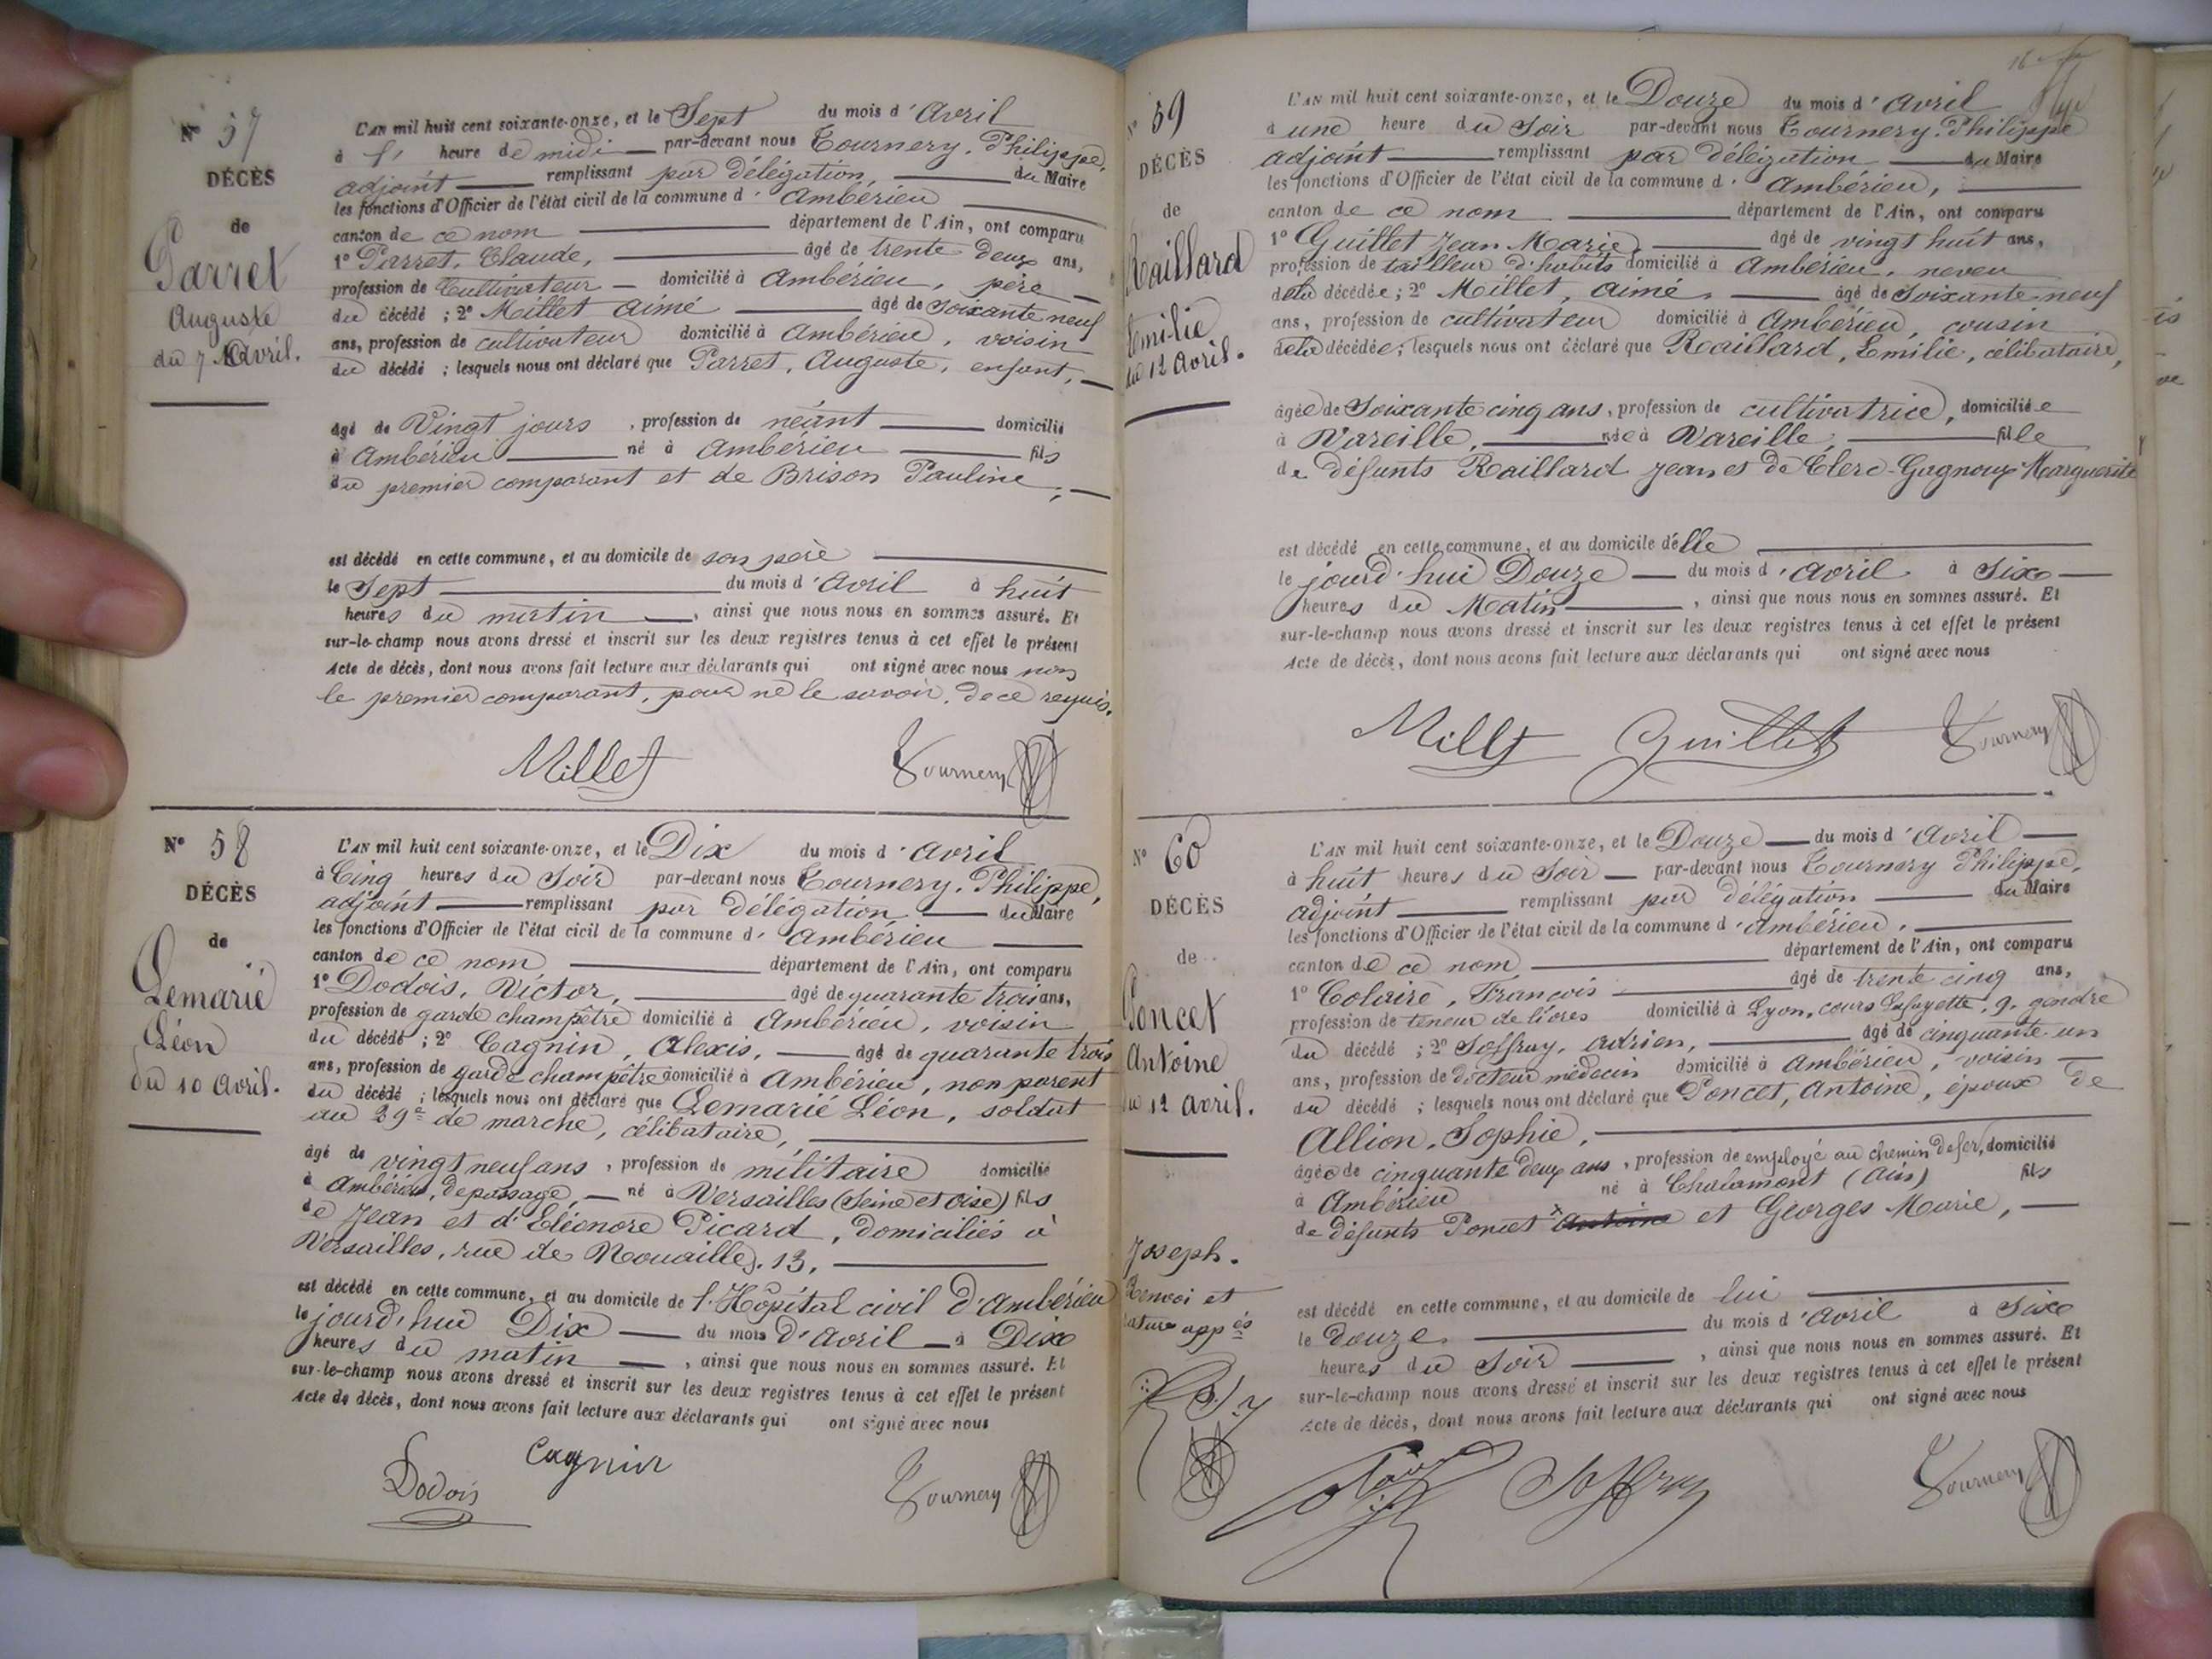 N° 57
DÉCÈS
de
Parret
Auguste
du 7 Avril.
L'AN mil huit cent soixante-onze, et le Sept du mois d'Avril
à heure de midi par-devant nous Tournery, Philippe,
adjoint remplissant par délégation, du Maire
les fonctions d'Officier de l'état civil de la commune d'Ambérieu
canton de ce nom département de l'Ain, ont comparu
1° Parret, Claude, âgé de trente deux ans,
profession de Cultivateur domicilié à Ambérieu, père
du décédé ; 2° Millet Aimé âgé de soixante neuf
ans, profession de cultivateur domicilié à Ambérieu, voisin
du décédé ; lesquels nous ont déclaré que Parret, Auguste, enfant,
âgé de Vingt jours, profession de néant domicilié
à Ambérieu né à Ambérieu fils
du premier comparant et de Brison Pauline,
est décédé en cette commune, et au domicile de son père
le Sept du mois d'Avril à huit
heures du matin, ainsi que nous nous en sommes assuré. Et
sur-le-champ nous avons dressé et inscrit sur les deux registres tenus à cet effet le présent
Acte de décès, dont nous avons fait lecture aux déclarants qui ont signé avec nous non
le premier comparant, pour ne le savoir, de ce requis.
Millet Tournery
N° 58
DÉCÈS
de
Lemarié
Léon
du 10 avril.
L'AN mil huit cent soixante-onze, et le Dix du mois d'avril
à Cinq heures du Soir par-devant nous Tournery, Philippe,
adjoint remplissant par délégation du Maire
les fonctions d'Officier de l'état civil de la commune d'Ambérieu
canton de ce nom département de l'Ain, ont comparu
1° Dodois, Victor, âgé de quarante trois ans,
profession de garde champêtre domicilié à Ambérieu, voisin
du décédé ; 2° Cagnin, Alexis, âgé de quarante trois
ans, profession de garde champêtre domicilié à Ambérieu, non parent
du décédé ; lesquels nous ont déclaré que Lemarié Léon, soldat
au 39e de marche, célibataire,
âgé de vingt neuf ans, profession de militaire domicilié
à Ambérieu, de passage, né à Versailles (Seine et Oise) fils
de Jean et d'Eléonore Picard, domiciliés à
Versailles, rue de Nouailles, 13,
est décédé en cette commune, et au domicile de l'Hôpital civil d'Ambérieu
le jourd'hui Dix du mois d'Avril à Dix
heures du matin, ainsi que nous nous en sommes assuré. Et
sur-le-champ nous avons dressé et inscrit sur les deux registres tenus à cet effet le présent
Acte de décès, dont nous avons fait lecture aux déclarants qui ont signé avec nous
Dodois Cagnin Tournery
16
N° 59
DÉCÈS
de
Raillard
Emilie
du 12 avril.
L'AN mil huit cent soixante-onze, et le Douze du mois d'avril
à une heure du Soir par-devant nous Tournery, Philippe
adjoint remplissant par délégation du Maire
les fonctions d'Officier de l'état civil de la commune d'Ambérieu,
canton de ce nom département de l'Ain, ont comparu
1° Guillet Jean Marie, âgé de vingt huit ans,
profession de tailleur d'habits domicilié à Ambérieu, neveu
de la décédée ; 2° Millet, Aimé, âgé de soixante neuf
ans, profession de cultivateur domicilié à Ambérieu, cousin
de la décédée ; lesquels nous ont déclaré que Raillard, Emilie, célibataire,
âgée de Soixante cinq ans, profession de cultivatrice, domiciliée
à Vareille, née à Vareille, fille
de défunts Raillard Jean et de Clerc-Gagnoux Marguerite
est décédé en cette commune, et au domicile d'elle
le jourd'hui Douze du mois d'avril à Six
heures du Matin, ainsi que nous nous en sommes assuré. Et
sur-le-champ nous avons dressé et inscrit sur les deux registres tenus à cet effet le présent
Acte de décès, dont nous avons fait lecture aux déclarants qui ont signé avec nous
Millet Guillet Tournery
N° 60
DÉCÈS
de
Poncet
Antoine
du 12 avril.
L'AN mil huit cent soixante-onze, et le Douze du mois d'avril
à huit heures du Soir par-devant nous Tournery Philippe,
adjoint remplissant par délégation du Maire
les fonctions d'Officier de l'état civil de la commune d'Ambérieu,
canton de ce nom département de l'Ain, ont comparu
1° Colaire, François âgé de trente cinq ans,
profession de teneur de livres domicilié à Lyon, cours Lafayette, 9, gendre
du décédé ; 2° Soffray, Adrien, âgé de cinquante-un
ans, profession de docteur médecin domicilié à Ambérieu, voisin
du décédé ; lesquels nous ont déclaré que Poncet, Antoine, époux de
Allion, Sophie,
âgé de cinquante deux ans, profession de employé au chemin de fer, domicilié
à Ambérieu né à Chalamont (Ain) fils
de défunts Poncet x Antoine et Georges Marie,
Joseph.
Renvoi et
rature appés
est décédé en cette commune, et au domicile de lui
le douze du mois d'avril à Six
heures du Soir, ainsi que nous nous en sommes assuré. Et
sur-le-champ nous avons dressé et inscrit sur les deux registres tenus à cet effet le présent
Acte de décès, dont nous avons fait lecture aux déclarants qui ont signé avec nous
Soffray Tournery